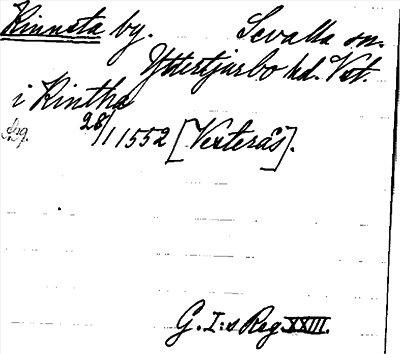 Kinnsta by. Sevalla sn.
Yttertjurbo hd. Vst.
i Kintha
28/1 1552 [Vesterås].
G. I:s Reg. XXIII.